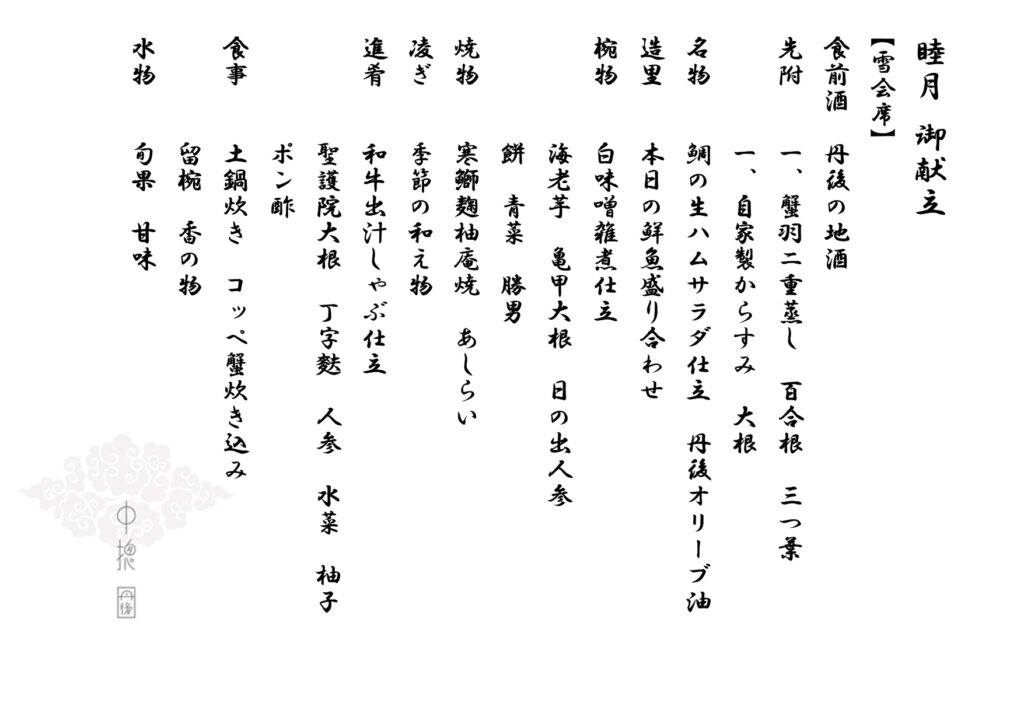 睦月 御献立
【雪会席】
食前酒 丹後の地酒
先附 一、蟹羽二重蒸し 百合根 三つ葉
一、自家製からすみ 大根
名物 鯛の生ハムサラダ仕立 丹後オリーブ油
造里 本日の鮮魚盛り合わせ
椀物 白味噌雑煮仕立
海老芋 亀甲大根 日の出人参
餅 青菜 勝男
焼物 寒鰤麹柚庵焼 あしらい
凌ぎ 季節の和え物
進肴 和牛出汁しゃぶ仕立
聖護院大根 丁字麩 人参 水菜 柚子
ポン酢
食事 土鍋炊き コッペ蟹炊き込み
留椀 香の物
水物 旬果 甘味
中
丹後